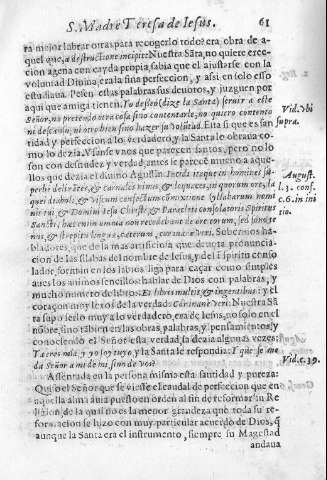 S. Madre Teresa de Iesus. 61
ra mejor labrar otras para recogerlo todo: era obra de a-
quel que, a destructione incipit: Nuestra Sāta, no quiere exce-
cion agena con cayda propia, sabia que el ajustarse con la
voluntad Divina, era la fina perfeccion, y assi en solo esso
estudiava. Pesen estas palabras sus devotos, y juzguen por
aqui que amiga tienen. Yo deseo (dize la Santa) servir a este
Señor, no pretendo otra cosa sino contentarle, no quiero contento
ni descanso, ni otro bien sino hazer su volūtad. Esta si que es san
tidad y perfeccion a lo verdadero, y la Santa le obrava co-
mo lo dezia. Vsanse vnos que parecen santos, pero no lo
son con desnudez y verdad, antes
llos que dezia el divino Agustin. Incidi itaque in homines su-
perbe delirātes, & carnales nimis, & loquaces, in quorum ore, la
quei diaboli, & viscum confectum commixtione syllabarum nomi
nis tui, & Domini Iesu Christi, & Paracleti consolatoris Spiritus
Sancti, hæc enim omnia non recedebant de ore eorum, sed sono te
nus, & strepitu linguæ, cæterum, cor inane veri. Sobervios ha-
bladores, que de la mas artificiosa que devota pronuncia-
cion de las silabas del nombre de Iesus, y del Espiritu conso
lador, forman en los labios liga para caçar como simples
aves los animos sencillos: hablar de Dios con palabras, y
mucho numero de libros. Et libris multis, & ingentibus: y el
coraçon muy lexos de la verdad: Cor inane veri. Nuestra Sā
ta supo serlo muy a lo verdadero, era de Iesus, no solo en el
nōbre, sino tābien en las obras, palabras, y pensamientos, y
conociendo el Señor esta verdad, la dezia algunas vezes:
Ya eres mia, y yo soy tuyo, y la Santa le respondia: Y que se me
da Señor a mi de mi, sino de vos?
Assentada en la persona misma esta santidad y pureza:
Quiso el Señor que se viesse el caudal de perfeccion que en
aquella alma avia puesto en orden al fin de reformar su Re
ligion de la qual no es la menor grandeza que toda su re-
formacion se hizo con muy particular acuerdo de Dios, q̄
aunque la Santa era el instrumento, siempre su Magestad
andava
Vid. vbi
supra.
August.
l. 3. conf.
c. 6. in ini
tio.
Vid. c. 39.